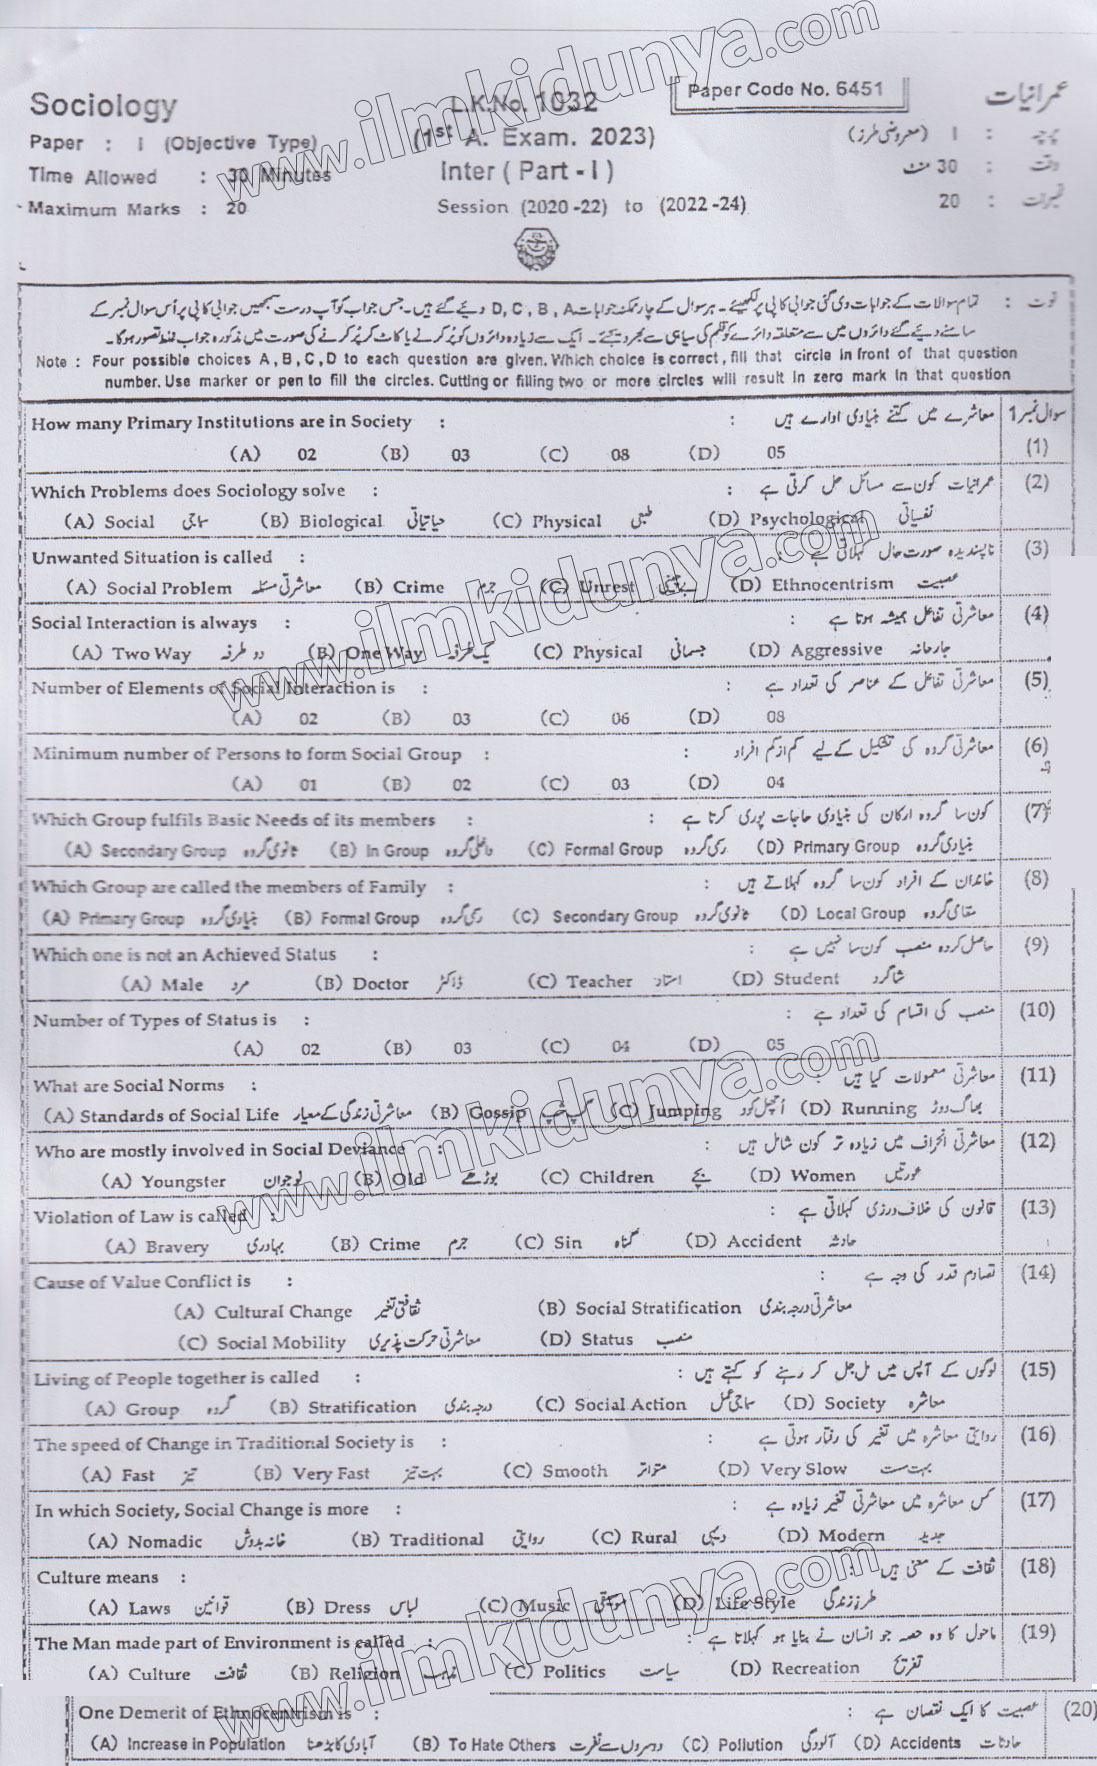 Sociology L.K.No. 1032 Paper Code No. 6451 عمرانیات
Paper : I (Objective Type) (1st A. Exam. 2023) پرچہ : I (معروضی طرز)
Time Allowed : 30 Minutes Inter ( Part - I ) وقت : 30 منٹ
Maximum Marks : 20 Session (2020 -22) to (2022 -24) نمبرات : 20
نوٹ : تمام سوالات کے جوابات دی گئی جوابی کاپی پر لکھیئے ۔ ہر سوال کے چار ممکنہ جوابات D, C, B, A دیئے گئے ہیں ۔ جس جواب کو آپ درست سمجھیں جوابی کاپی پر اُس سوال نمبر کے
سامنے دیئے گئے دائروں میں سے متعلقہ دائرے کو قلم کی سیاہی سے بھر دیجئے ۔ ایک سے زیادہ دائروں کو پُر کرنے یا کاٹ کر پُر کرنے کی صورت میں مذکورہ جواب غلط تصور ہو گا ۔
Note : Four possible choices A , B , C , D to each question are given. Which choice is correct , fill that circle in front of that question
number. Use marker or pen to fill the circles. Cutting or filling two or more circles will result in zero mark in that question
How many Primary Institutions are in Society : معاشرے میں کتنے بنیادی ادارے ہیں : سوال نمبر 1
(A) 02 (B) 03 (C) 08 (D) 05 (1)
Which Problems does Sociology solve : عمرانیات کون سے مسائل حل کرتی ہے : (2)
(A) Social سماجی (B) Biological حیاتیاتی (C) Physical طبعی (D) Psychological نفسیاتی
Unwanted Situation is called : ناپسندیدہ صورت حال کہلاتی ہے : (3)
(A) Social Problem معاشرتی مسئلہ (B) Crime جرم (C) Unrest بے چینی (D) Ethnocentrism عصبیت
Social Interaction is always : معاشرتی تفاعل ہمیشہ ہوتا ہے : (4)
(A) Two Way دو طرفہ (B) One Way یک طرفہ (C) Physical جسمانی (D) Aggressive جارحانہ
Number of Elements of Social Interaction is : معاشرتی تفاعل کے عناصر کی تعداد ہے : (5)
(A) 02 (B) 03 (C) 06 (D) 08
Minimum number of Persons to form Social Group : معاشرتی گروہ کی تشکیل کے لیے کم از کم افراد : (6)
(A) 01 (B) 02 (C) 03 (D) 04
Which Group fulfils Basic Needs of its members : کون سا گروہ ارکان کی بنیادی حاجات پوری کرتا ہے : (7)
(A) Secondary Group ثانوی گروہ (B) In Group داخلی گروہ (C) Formal Group رسمی گروہ (D) Primary Group بنیادی گروہ
Which Group are called the members of Family : خاندان کے افراد کون سا گروہ کہلاتے ہیں : (8)
(A) Primary Group بنیادی گروہ (B) Formal Group رسمی گروہ (C) Secondary Group ثانوی گروہ (D) Local Group مقامی گروہ
Which one is not an Achieved Status : حاصل کردہ منصب کون سا نہیں ہے : (9)
(A) Male مرد (B) Doctor ڈاکٹر (C) Teacher استاد (D) Student شاگرد
Number of Types of Status is : منصب کی اقسام کی تعداد ہے : (10)
(A) 02 (B) 03 (C) 04 (D) 05
What are Social Norms : معاشرتی معمولات کیا ہیں : (11)
(A) Standards of Social Life معاشرتی زندگی کے معیار (B) Gossip گپ شپ (C) Jumping اُچھل کود (D) Running بھاگ دوڑ
Who are mostly involved in Social Deviance : معاشرتی انحراف میں زیادہ تر کون شامل ہیں : (12)
(A) Youngster نوجوان (B) Old بوڑھے (C) Children بچے (D) Women عورتیں
Violation of Law is called : قانون کی خلاف ورزی کہلاتی ہے : (13)
(A) Bravery بہادری (B) Crime جرم (C) Sin گناہ (D) Accident حادثہ
Cause of Value Conflict is : تصادم قدر کی وجہ ہے : (14)
(A) Cultural Change ثقافتی تغیر (B) Social Stratification معاشرتی درجہ بندی
(C) Social Mobility معاشرتی حرکت پذیری (D) Status منصب
Living of People together is called : لوگوں کے آپس میں مل جل کر رہنے کو کہتے ہیں : (15)
(A) Group گروہ (B) Stratification درجہ بندی (C) Social Action سماجی عمل (D) Society معاشرہ
The speed of Change in Traditional Society is : روایتی معاشرہ میں تغیر کی رفتار ہوتی ہے : (16)
(A) Fast تیز (B) Very Fast بہت تیز (C) Smooth متواتر (D) Very Slow بہت سست
In which Society, Social Change is more : کس معاشرہ میں معاشرتی تغیر زیادہ ہے : (17)
(A) Nomadic خانہ بدوش (B) Traditional روایتی (C) Rural دیہی (D) Modern جدید
Culture means : ثقافت کے معنی ہیں : (18)
(A) Laws قوانین (B) Dress لباس (C) Music موسیقی (D) Life Style طرز زندگی
The Man made part of Environment is called : ماحول کا وہ حصہ جو انسان نے بنایا ہو کہلاتا ہے : (19)
(A) Culture ثقافت (B) Religion مذہب (C) Politics سیاست (D) Recreation تفریح
One Demerit of Ethnocentrism is : عصبیت کا ایک نقصان ہے : (20)
(A) Increase in Population آبادی کا بڑھنا (B) To Hate Others دوسروں سے نفرت (C) Pollution آلودگی (D) Accidents حادثات
www.ilmkidunya.com
www.ilmkidunya.com
www.ilmkidunya.com
www.ilmkidunya.com